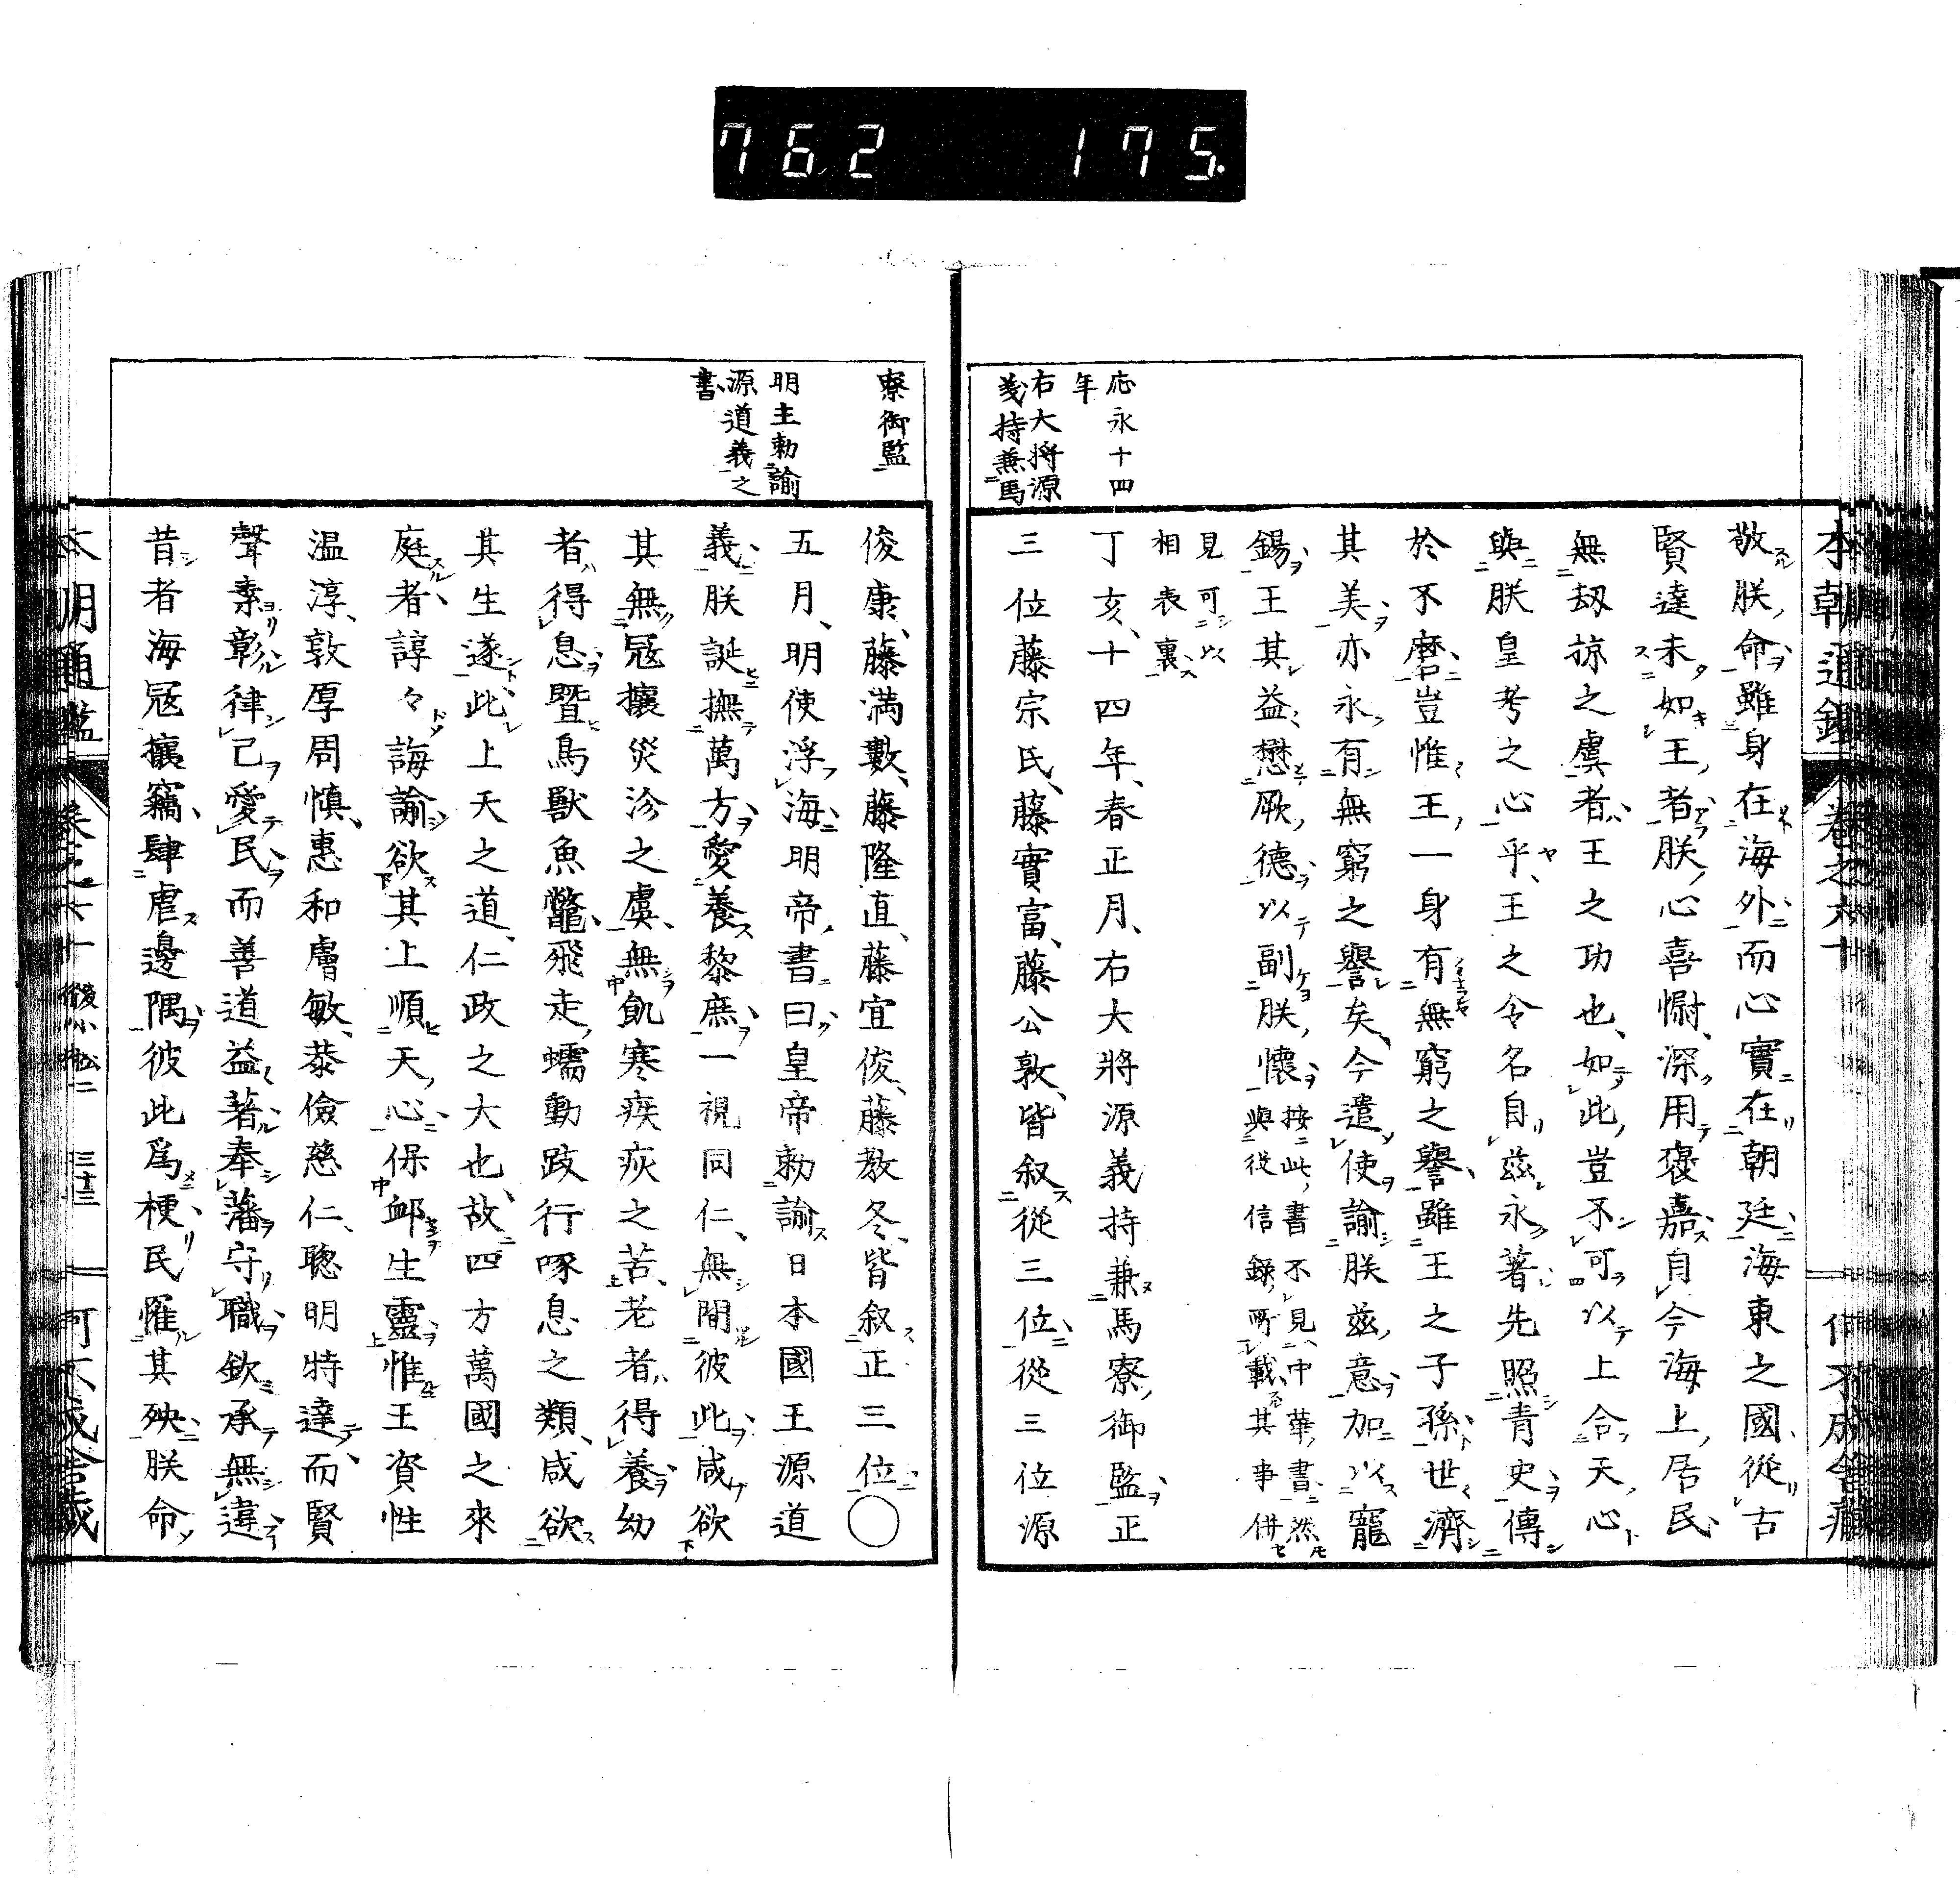 762 175.
本朝通鑑 卷之六十 何不成舍藏
敬朕命雖身在海外而心實在朝廷海東之國從古
賢達未如王者朕心喜慰深用褒嘉自今海上居民
無刼掠之虞者王之功也如此豈不可以上合天心
與朕皇考之心乎王之令名自茲永著先照青史傳
於不磨豈惟王一身有無窮之譽雖王之子孫世濟
其美亦永有無窮之譽矣今遣使諭朕茲意加以寵
錫王其益懋厥德以副朕懷按此書不見中華書然
與從信錄所載其事併
見可以
相表裏
応永十四
年
丁亥十四年春正月右大將源義持兼馬寮御監正
右大將源
義持兼馬
三位藤宗氏藤實富藤公敦皆叙從三位從三位源
寮御監
俊康藤満數藤隆直藤宜俊藤教冬皆叙正三位〇
明主勅諭
源道義之
書
五月明使浮海明帝書曰皇帝勅諭日本國王源道
義朕誕撫萬方愛養黎庶一視同仁無間彼此咸欲
其無冦攘災沴之虞無飢寒疾疢之苦老者得養幼
者得息曁鳥獸魚鼈飛走蠕動跂行啄息之類咸欲
其生遂此上天之道仁政之大也故四方萬國之來
庭者諄々誨諭欲其上順天心保卹生靈惟王資性
温淳敦厚周愼惠和膚敏恭儉慈仁聰明特達而賢
聲素彰律己愛民而善道益著奉藩守職欽承無違
昔者海冦攘竊肆虐邊隅彼此爲梗民罹其殃朕命